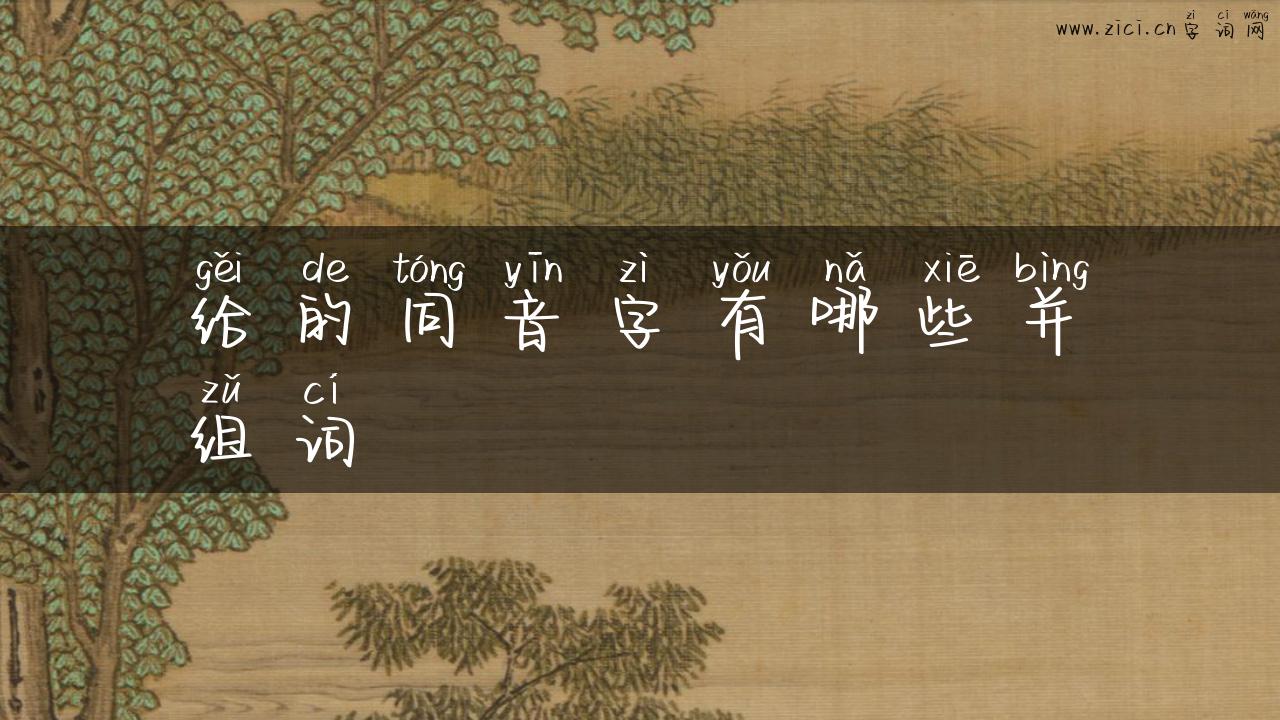 zì cí wǎng
www.zici.cn 字词网
gěi de tóng yīn zì yǒu nǎ xiē bìng
给的同音字有哪些并
zǔ cí
组词